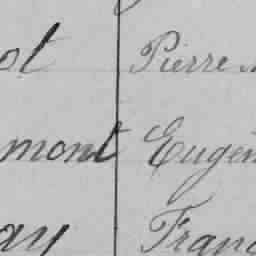 ot Pierre
mont Eugèn
ay Franc